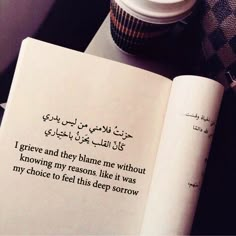 حزنتُ فلامني من ليس يدري
كأنّ القلب يحزنُ باختياري
I grieve and they blame me without
knowing my reasons, like it was
my choice to feel this deep sorrow